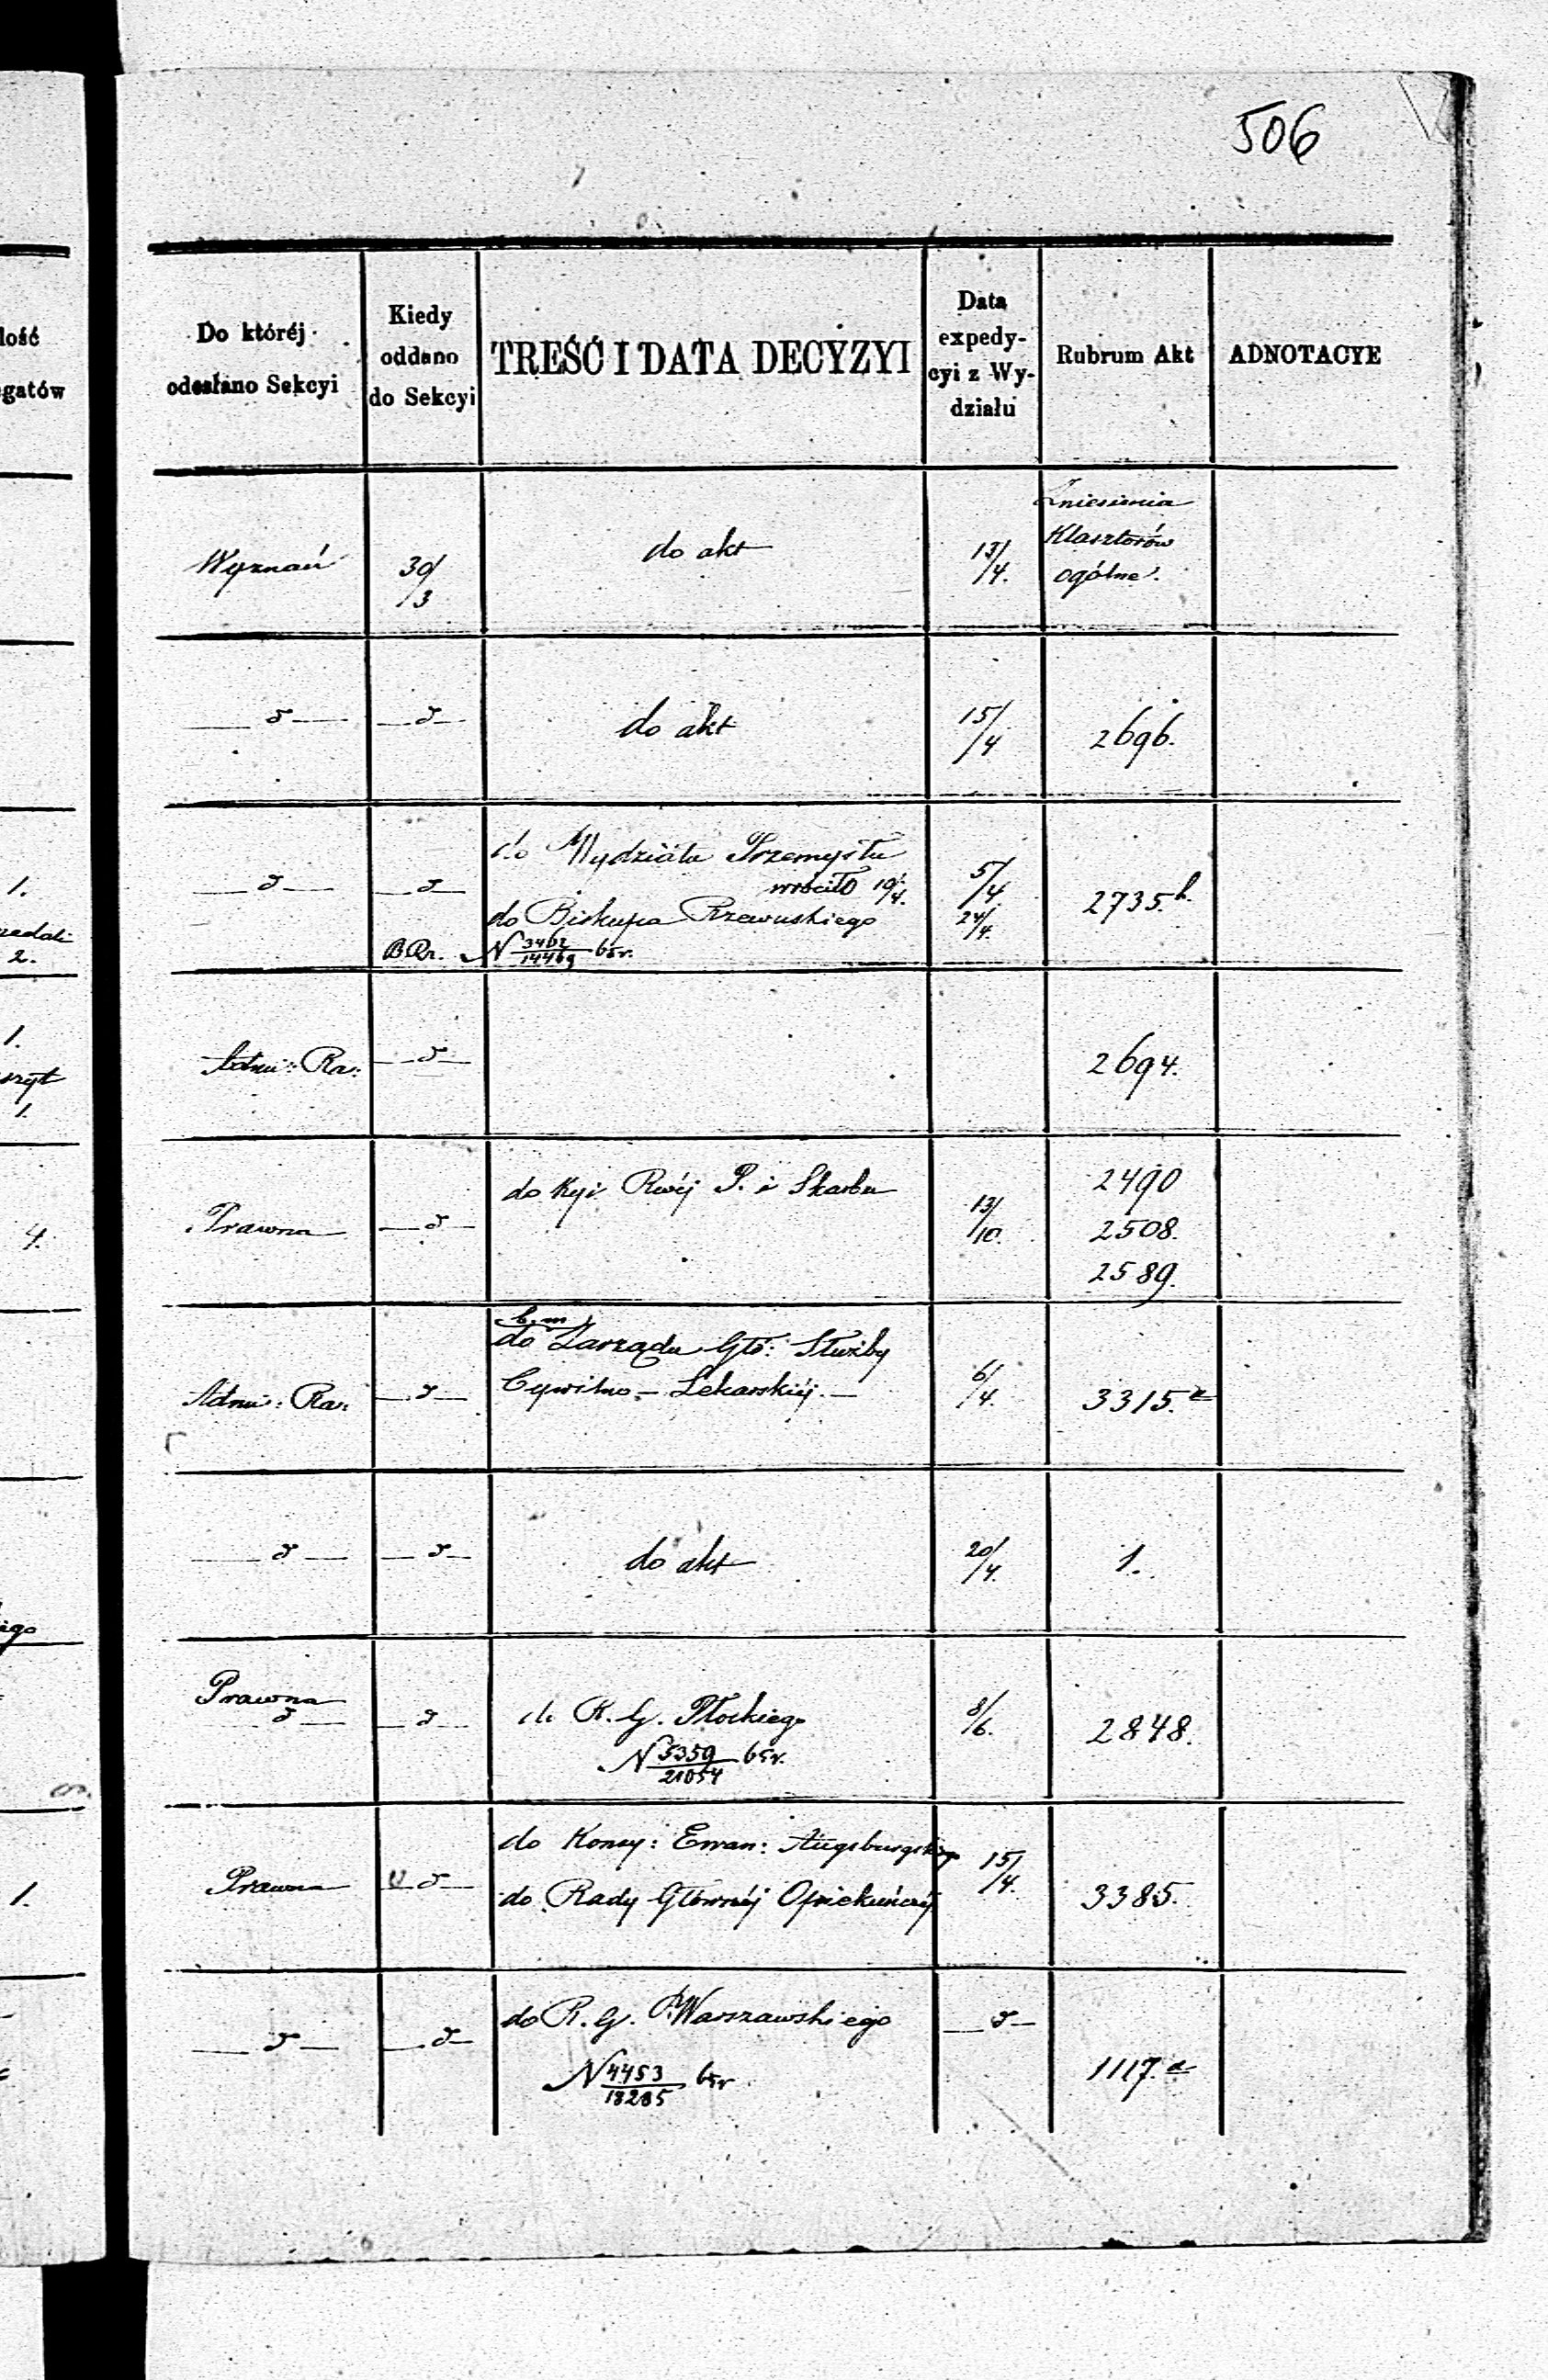 506
lość
egatów
Do któréj
odesłano Sekcyi
Kiedy
oddano
do Sekcyi
TREŚĆ I DATA DECYZYI
Data
expedy-
cyi z Wy-
działu
Rubrum Akt
ADNOTACYE
Wyznań
30/3
do akt
13/4.
Zniesienia
Klasztorów
ogólne.
do akt
15/4
2696.
1.
2.
do Wydziału Przemysłu
wróciło 19/4.
do Biskupa Rzewuskiego
N 3462/14469 65r.
5/4.
24/4.
2735.b.
1.
szyt
1.
Adm: Ra:
2694.
4.
Prawna
do Kyi Rwéj P. i Skarbu
13/10.
2490
2508.
2589.
Adm: Ra:
do Zarządu Głó: Służby
Cywilno-Lekarskiéj.
6/4.
3315.a
do akt
20/4.
1.
iego
Prawna
R. G. Płockiego
N 5359/21054 65r.
8/6.
2848.
1.
Prawna
do Konsy: Ewan: Augsburgskiego
do Rady Głównéj Opiekuńczéj
15/4.
3385.
do R. G. Warszawskiego
N 4453/18285 65r
1117.a